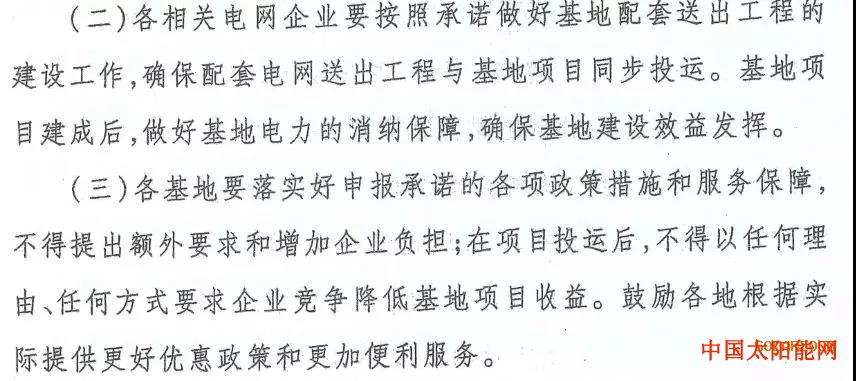 (二)各相关电网企业要按照承诺做好基地配套送出工程的
建设工作,确保配套电网送出工程与基地项目同步投运。基地项
目建成后,做好基地电力的消纳保障,确保基地建设效益发挥。
(三)各基地要落实好申报承诺的各项政策措施和服务保障,
不得提出额外要求和增加企业负担;在项目投运后,不得以任何理
由、任何方式要求企业竞争降低基地项目收益。鼓励各地根据实
际提供更好优惠政策和更加便利服务。
中国太阳能网